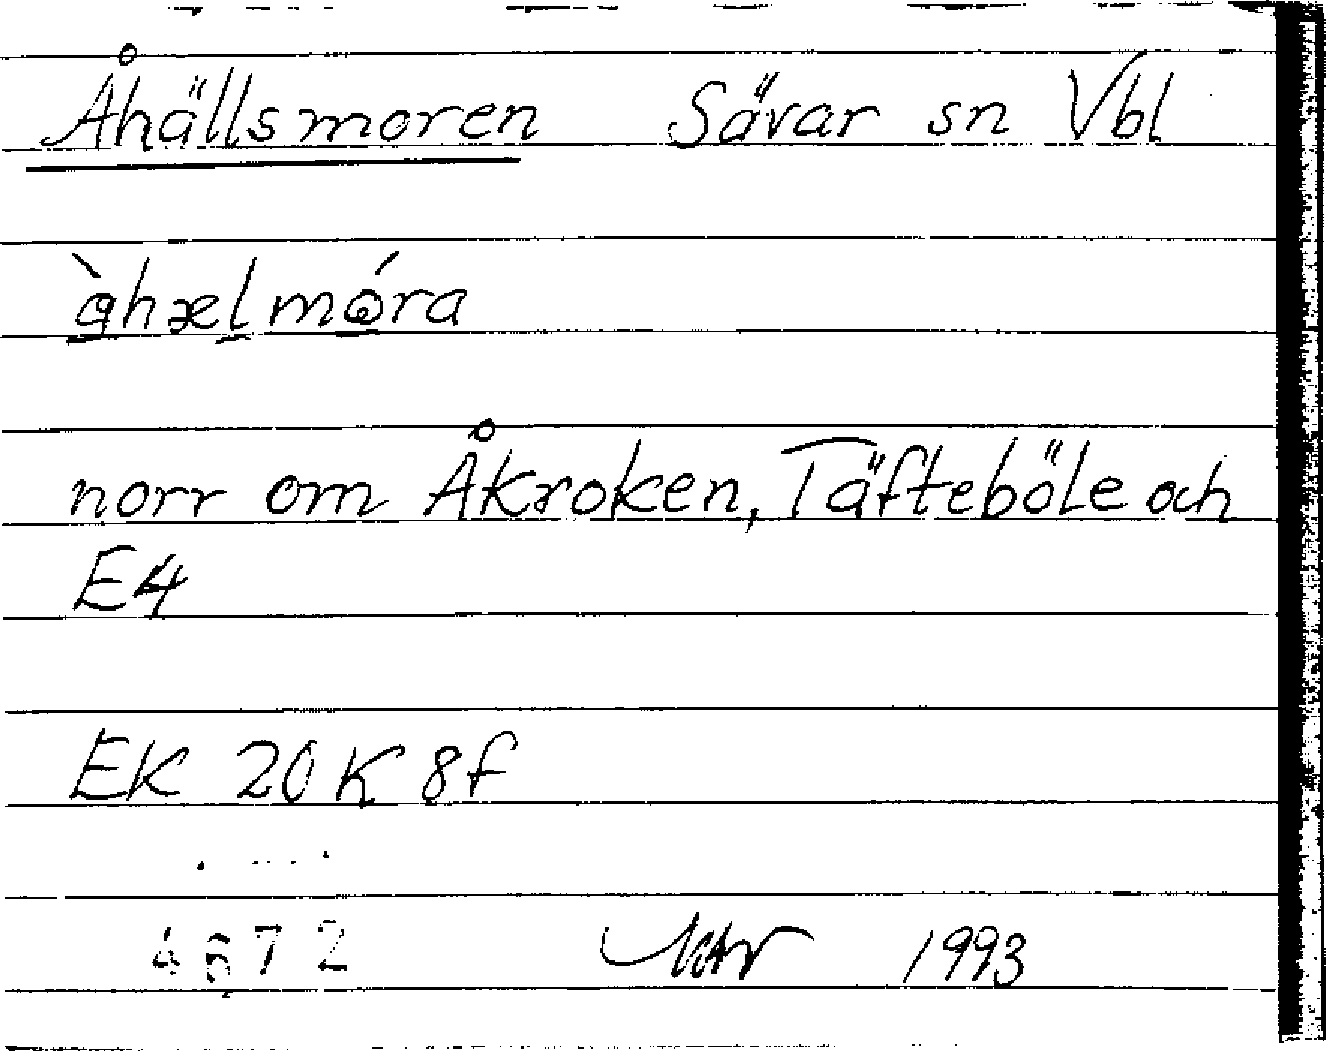 Åhällsmoren Sävar sn Vbl
norr om Åkroken, Täfteböle och
E4
EK 20K 8f
4672 1993